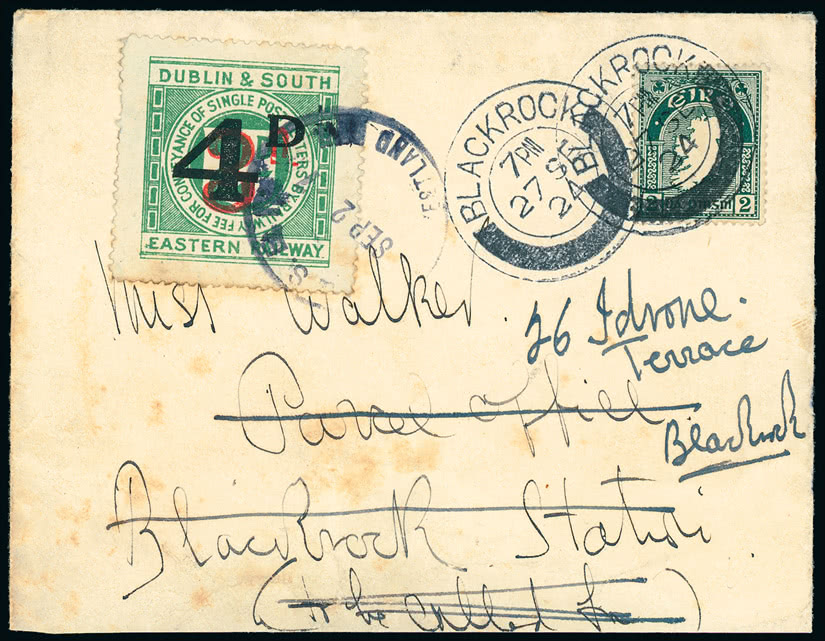 DUBLIN & SOUTH
FEE FOR CONVEYANCE OF SINGLE POST LETTERS BY RAILWAY
4D
EASTERN RAILWAY
WESTLAND
SEP 2
BLACKROCK
7PM
27 SE
24
BLACKROCK
7PM
24
éire
2 2
Miss Walker
26 Idrone.
Terrace
Blackrock
Parcel Office
Blackrock Station
(to be called for)